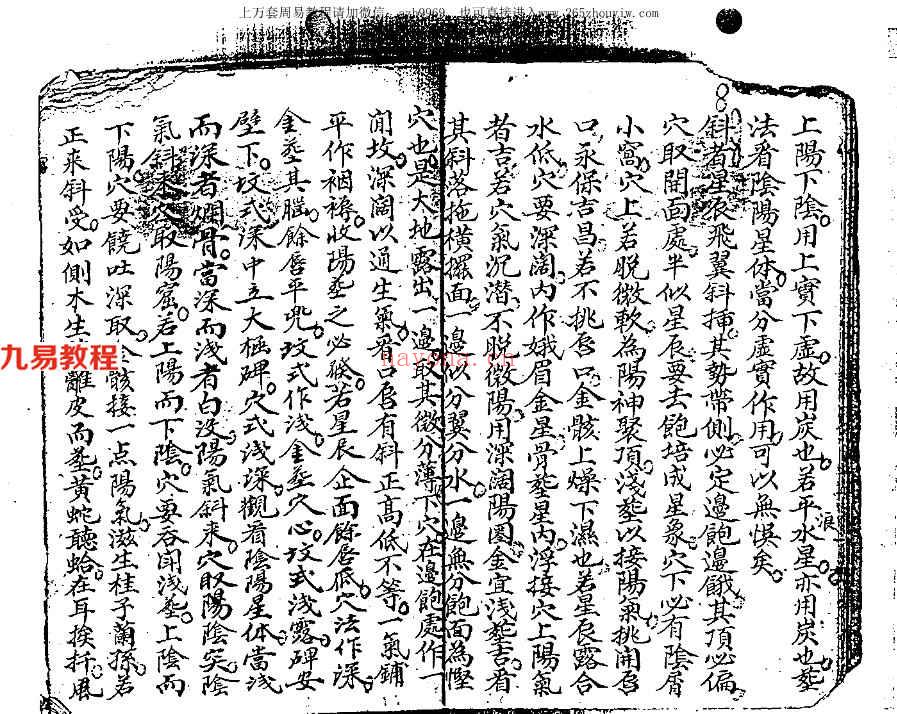 上万套周易教程请加微信：azb9969，也可直接进入www.265zhouyiw.com
上陽下陰。用上實下虛。故用炭也。若平水星亦用炭也。塟
浪
法看陰陽星体。當分虛實作用。可以無悞矣。
斜者。星辰飛翼斜揷。其勢帶側。必定邊飽邊餓。其頂必偏。
穴取開面處。半似星辰。要去飽培成星象。穴下必有陰屑
小窩。穴上若脱微軟。為陽神聚頂。淺塟以接陽氣。挑開唇
口。永保吉昌。若不挑唇口。金骸上燥下濕也。若星辰露合
水低。穴要深濶。内作娥眉金星骨。塟星内浮接穴上陽氣
者吉。若穴氣沉潜。不脱微陽。用深濶陽圈金。宜淺塟吉。看
其斜落拖橫擺面。一邊以分翼分水。一邊無分飽面為慳
穴也。是大地露出一邊。取其微分薄下。穴在邊飽處作一
閒坟。深濶以通生氣。唇有斜正高低不等。一氣鋪
平作裀褥。收陽塟之必發。若星辰企面餘唇低。穴法作深
金塟其腦。餘唇平兜。坟式作淺。金塟穴心。坟式淺露。碑安
壁下。坟式深。中立大碑。穴式淺深。觀看陰陽星体。當淺
而深者爛骨。當深而淺者白没。陽氣斜来。穴取陽陰突。陰
氣斜来。穴取陽窟。若上陽而下陰。穴要吞開淺塟。上陰而
下陽。穴要饒吐深取。骸接一点陽氣。滋生桂子蘭孫。若
正来斜受。如側木生離皮而塟。黄蛇聽蛤。在耳挨扦。風
九易教程
nayona.cn